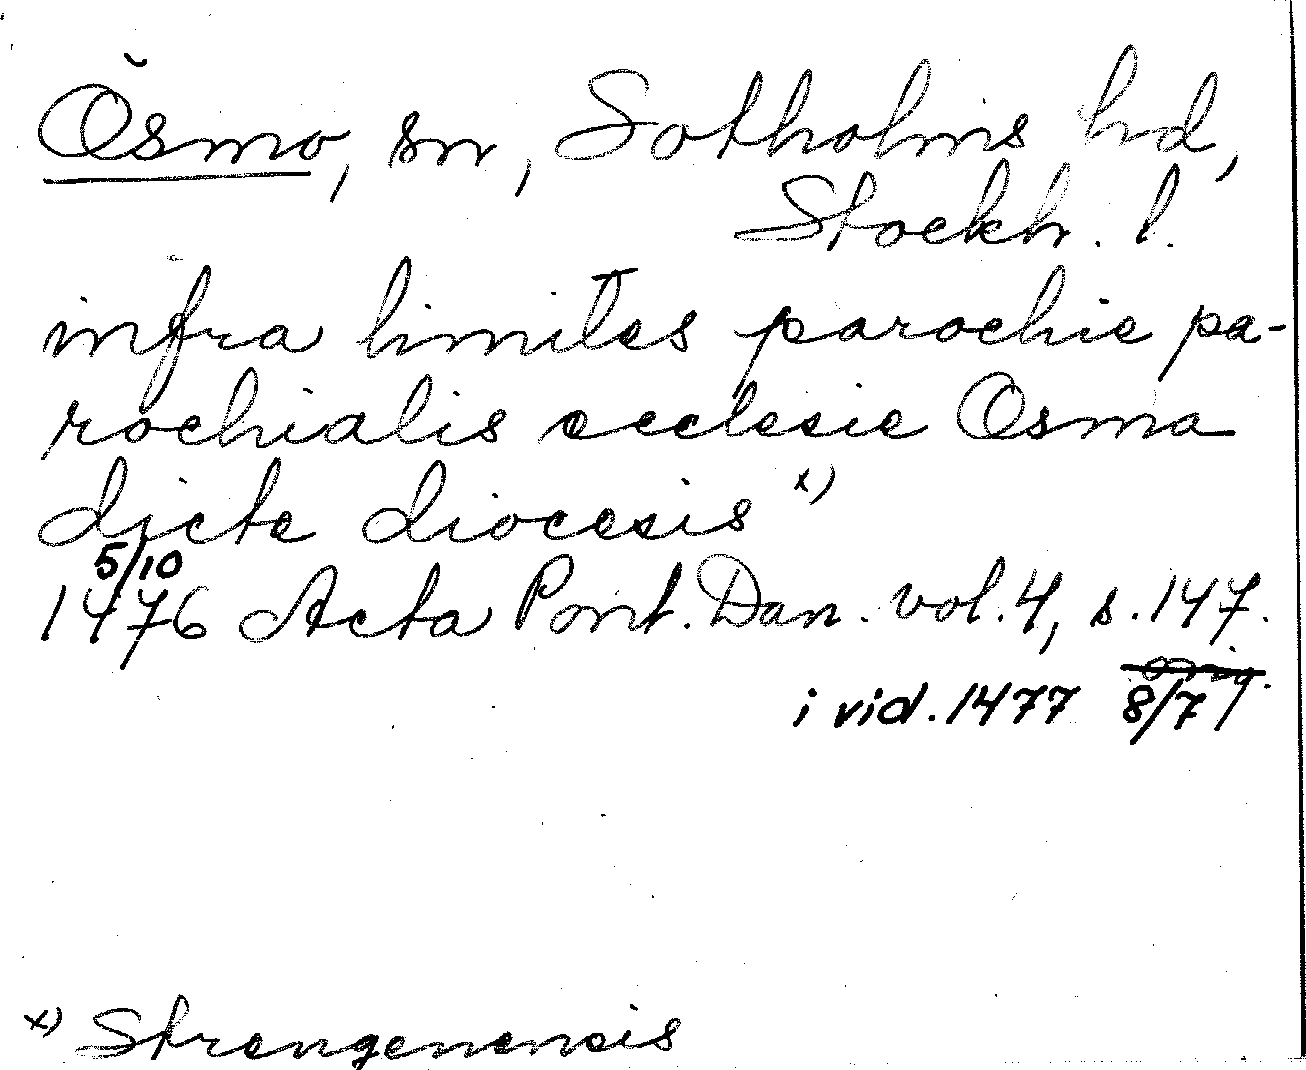 Ösmo, sn, Sotholms hd,
Stockh. l.
infra limites parochie pa-
rochialis ecclesie Osma
dicte diocesis x)
5/10
1476 Acta Pont. Dan. vol. 4, s. 147.
orig.
i vid. 1477 8/7
x) Strengenensis